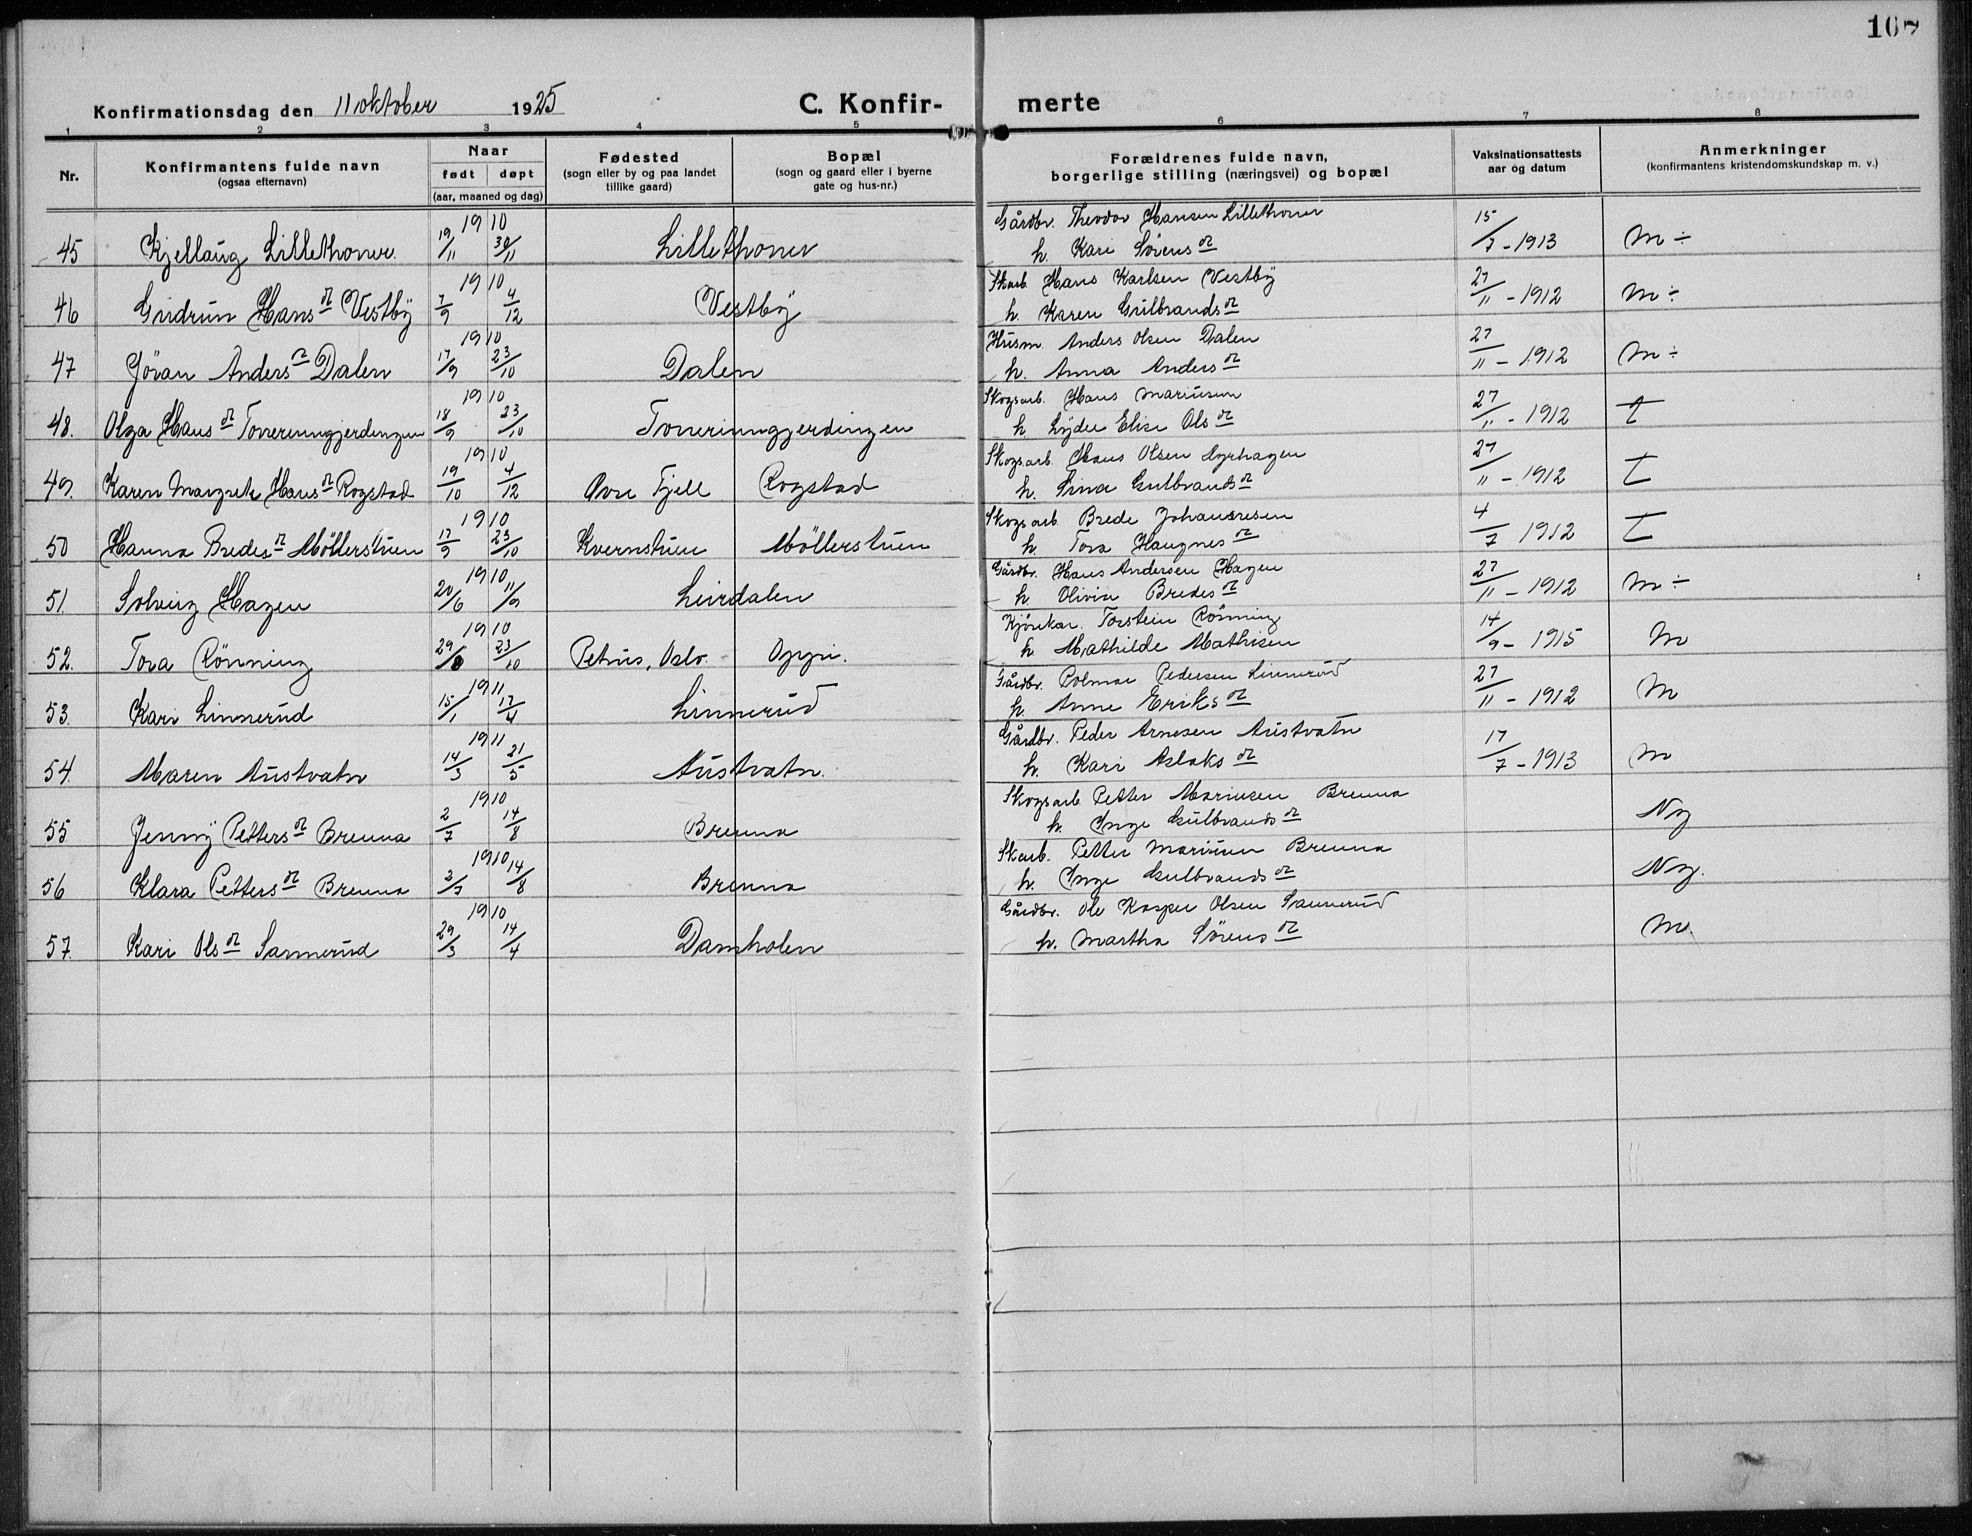 Konfirmationsdag den 11 oktober 1925 C. Konfir- merte
1 2 3 4 5 6 7 8
Nr. Konfirmantens fulde navn (ogsaa efternavn) Naar født døpt (aar, maaned og dag) Fødested (sogn eller by og paa landet tillike gaard) Bopæl (sogn og gaard eller i byerne gate og hus-nr.) Forældrenes fulde navn, borgerlige stilling (næringsvei) og bopæl Vaksinationsattests aar og datum Anmerkninger (konfirmantens kristendomskundskap m. v.)
1910 Gårdbr. Theodor Hansen Lillethoner
45 Kjellaug Lillethoner. 19/11 30/11 Lillethoner h. Kari Sørens dt 15/7 - 1913 M ÷
1910 Skarb Hans Karlsen Vestby
46 Gudrun Hans dt Vestbÿ 7/9 4/12 Vestbÿ h. Karen Gulbrands dt 27/11 - 1912 M ÷
1910 Husm. Anders Olsen Dalen
47 Jöran Anders dt Dalen 17/9 23/10 Dalen h. Anna Anders dt 27/11 - 1912 M ÷
1910 Skogsarb. Hans Mariusen
48. Olga Hans dt 18/9 23/10 h Elise Ols dt 27/11 - 1912 T
1910 Skogsarb. Hans Olsen
49. Karen Margrete Hans dt Rogstad 19/10 4/12 Fjell Rogstad h. Lina Gulbrands dt 27/11 - 1912 T
1910 Skogsarb Brede Johannesen
50 Hanna Bredes dt Möllerstuen 17/9 23/10 Kvernstuen Möllerstuen h Tora Haugnes dt 4/7 1912 T
1910 Gårdbr. Hans Andersen Hagen
51. Solveig Hagen 20/6 11/9 Leirdalen h. Olivia Bredes dt 27/11 - 1912 M ÷
1910 Torstein Rönning
52. Tora Rönning 29/8 23/10 Petrus, Oslo. Oppi. h Mathilde Mathisen 14/9 - 1915 M
1911 Gårdbr. Polmar Pedersen Linnerud
53. Kari Linnerud 15/1 17/4 Linnerud h. Anne Eriks dt 27/11 - 1912 M
1911 Gårdbr. Peder Arnesen Austvatn
54. Maren Austvatn 14/3 21/5 Austvatn. h. Kari Aslaks dt 17/7 - 1913 M
1910 Skogsarb Petter Mariusen Brenna
55 Jenny Petters dt Brenna 2/7 14/8 Brenna h. Inge Gulbrands dt Ng
1910 Skarb. Petter Mariusen Brenna
56 Klara Petters dt Brenna 2/7 14/8 Brenna h. Inge Gulbrands dt Ng.
1910 Gårdbr. Ole Kasper Olsen Sannerud
57. Kari Ols dt Sannerud 29/3 14/4 Damholen h. Martha Sörens dt M.